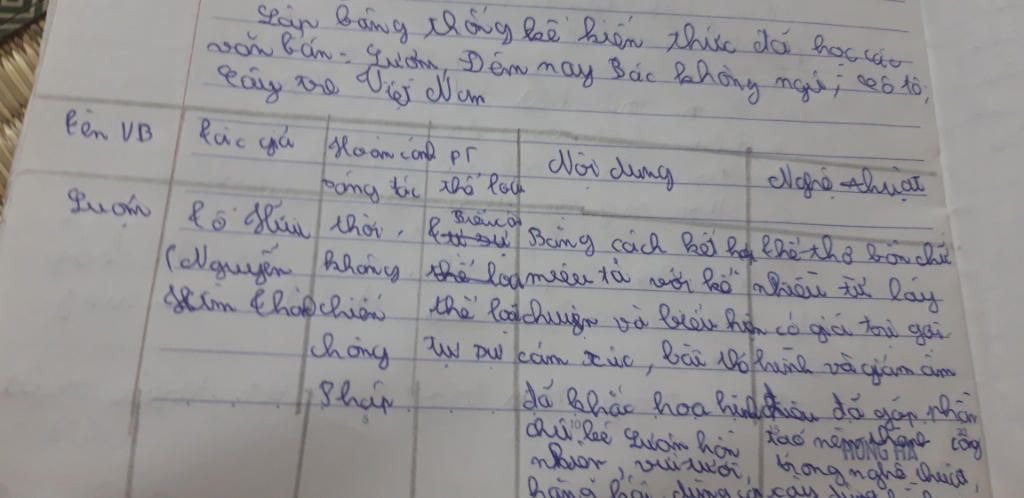 Lập bảng thống kê kiến thức đã học các
văn bản: Lượm, Đêm nay Bác không ngủ, Cô tô,
Cây tre Việt Nam
Tên VB
Tác giả
Hoàn cảnh sáng tác
PT thể loại
Nội dung
Nghệ thuật
Lượm
Tố Hữu
(Nguyễn
Kim Thành
thời
kháng
chiến
chống
Pháp
Biểu cả
thể loại
tự sự
Bằng cách kết hợp
miêu tả với kể
chuyện và biểu hiện
cảm xúc, bài thơ
đã khắc họa hình
chú bé Lượm hồn
nhiên, vui tươi,
hăng hái, dũng cả
thể thơ bốn chữ
nhiều từ láy
có giá trị gợi
hình và giàu âm
điệu đã góp phần
tạo nên thành công
trong nghệ thuật
xây dựng
HỒNG HÀ